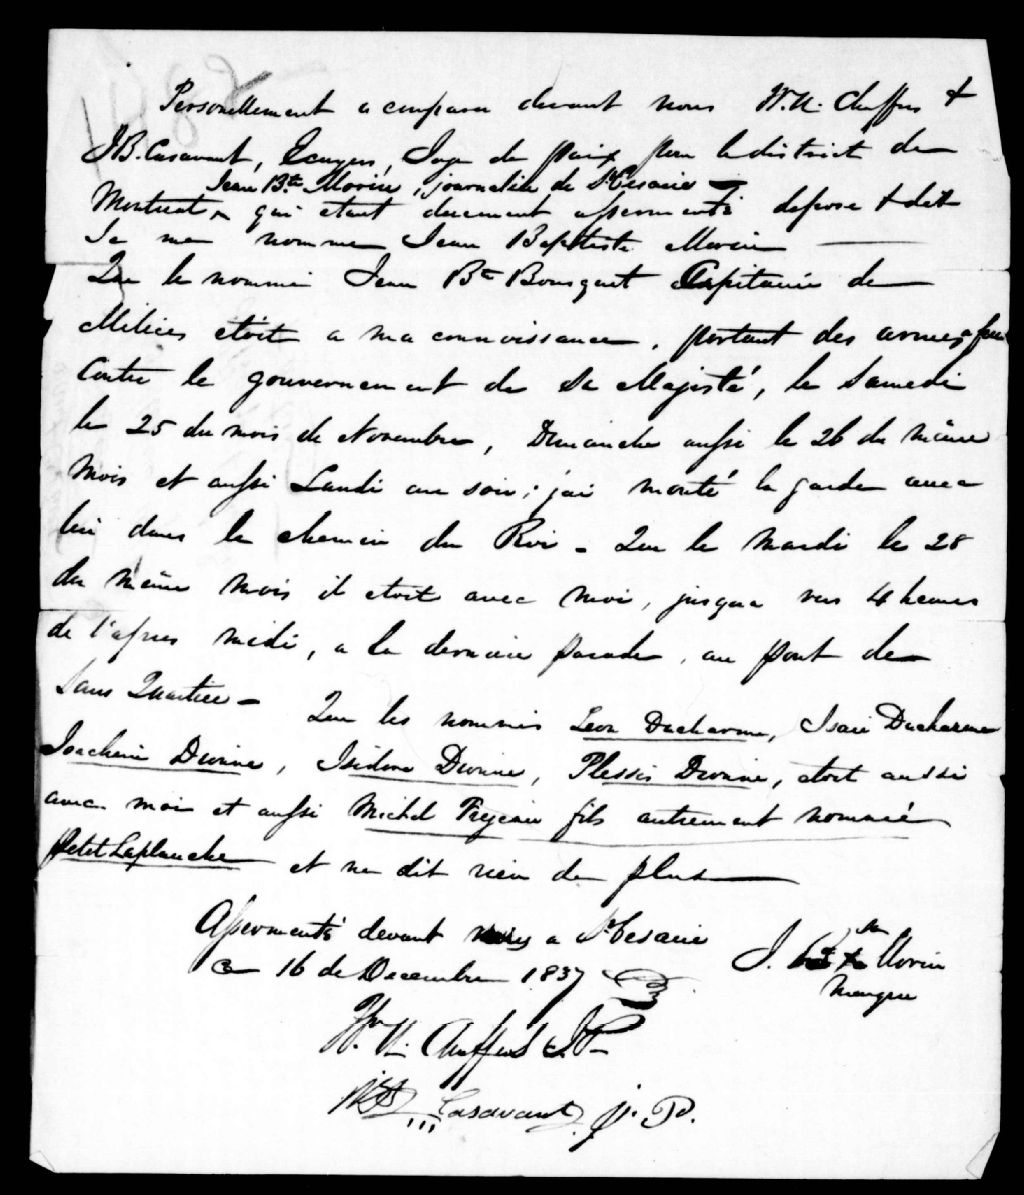 Personellement a comparu devant nous W. U. Chaffers &
J B. Casavant, Ecuyers, Juge de paix pour le district de
Jean Bte Morin, journalier de St Cesaire
Montreal qui etant duement assermenté depose & dit
Je me nomme Jean Baptiste Morin
Que le nommé Jean Bte Bousquet Capitaine de
Milices étoit a ma connoissance, portant des armes a feu
Contre le gouvernement de Sa Majesté, le Samedi
le 25 du mois de Novembre, Dimanche aussi le 26 du même
mois et aussi Lundi au soir; j'ai monté la garde avec
lui dans le chemin du Roi - Que le Mardi le 28
du même mois il etoit avec moi, jusqua vers 4 heures
de l'apres midi, a la derniere parade, au pont de
Sans Quartier - Que les nommés Leon Ducharme, Isaie Ducharme
Joachim Dionne, Isidore Dionne, Plessis Dionne, etoit aussi
avec moi et aussi Michel Frejeau fils autrement nommé
Petit Laplanche et ne dit rien de plus
Assermenté devant nous a St Cesaire
ce 16 de Decembre 1837
sa
J. Bt x Morin
marque
Wm U. Chaffers J.P.
Casavant J. P.